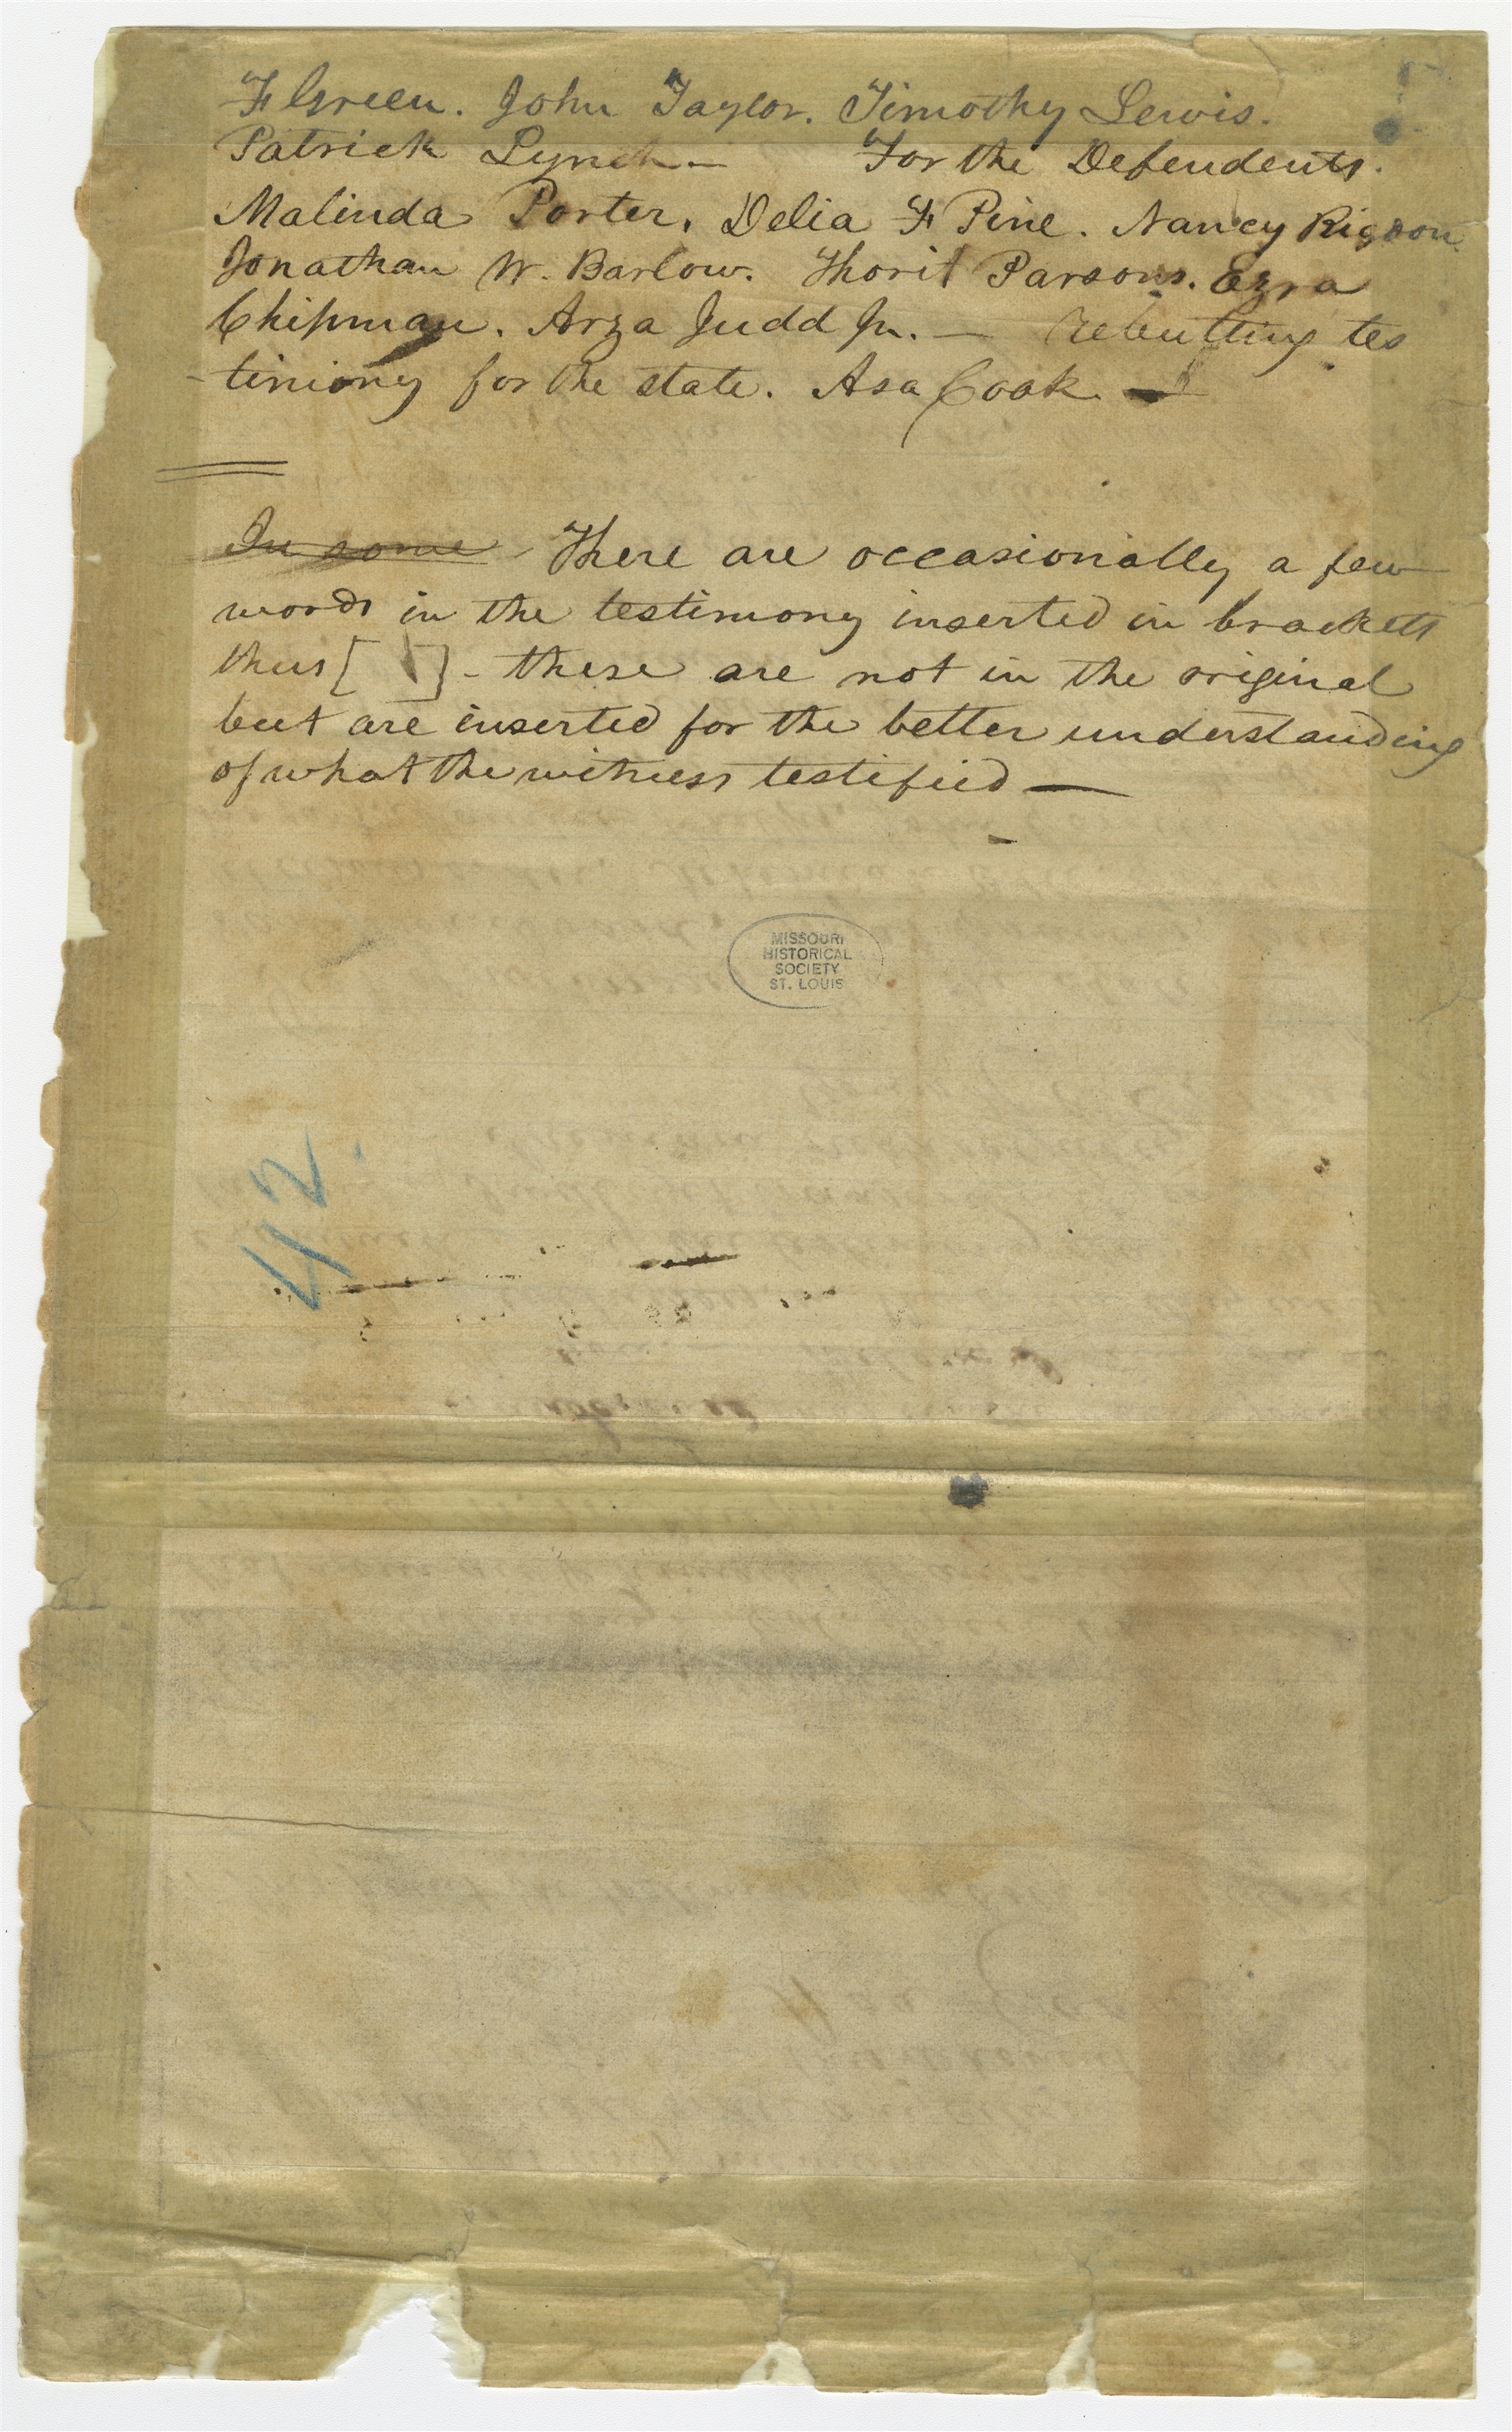 F Green. John Taylor. Timothy Lewis.
Patrick Lynch — For the Defendents.
Malinda Porter. Delia F Pine. Nancy Rigdon
Jonathan W. Barlow. Thorit Parsons. Ezra
Chipman. Arza Judd Jr. — Rebutting tes
-timony for the state. Asa Cook. —
In some There are occasionally a few
words in the testimony inserted in brackets
thus [ ] - these are not in the original
but are inserted for the better understanding
of what the witness testified —
MISSOURI
HISTORICAL
SOCIETY
ST. LOUIS
42.